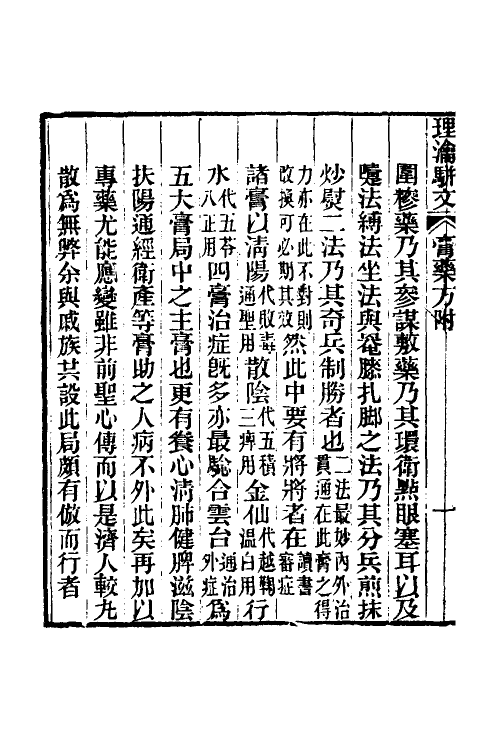 理瀹駢文 膏藥方附 一
圍糝藥乃其參謀敷藥乃其環衛點眼塞耳以及
嚏法縛法坐法與罨膝扎脚之法乃其分兵煎抹
炒熨二法乃其奇兵制勝者也二法最妙內外治貫通在此膏之得
力亦在此不對則改換可必期其效然此中要有將將者在讀書審症
諸膏以淸陽代敗毒通聖用散陰代五積三痺用金仙代越鞠溫白用行
水代五苓八正用四膏治症旣多亦最騐合雲台通治外症爲
五大膏局中之主膏也更有養心淸肺健脾滋陰
扶陽通經衛產等膏助之人病不外此矣再加以
專藥尤能應變雖非前聖心傳而以是濟人較丸
散爲無弊余與戚族共設此局頗有倣而行者